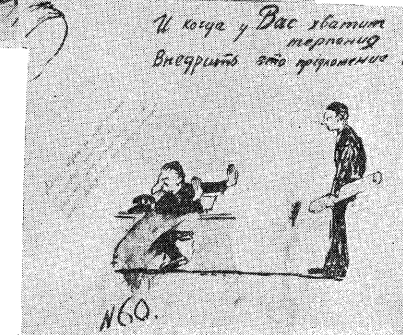 И когда у Вас хватит
терпения
Внедрить это предложение
N60.